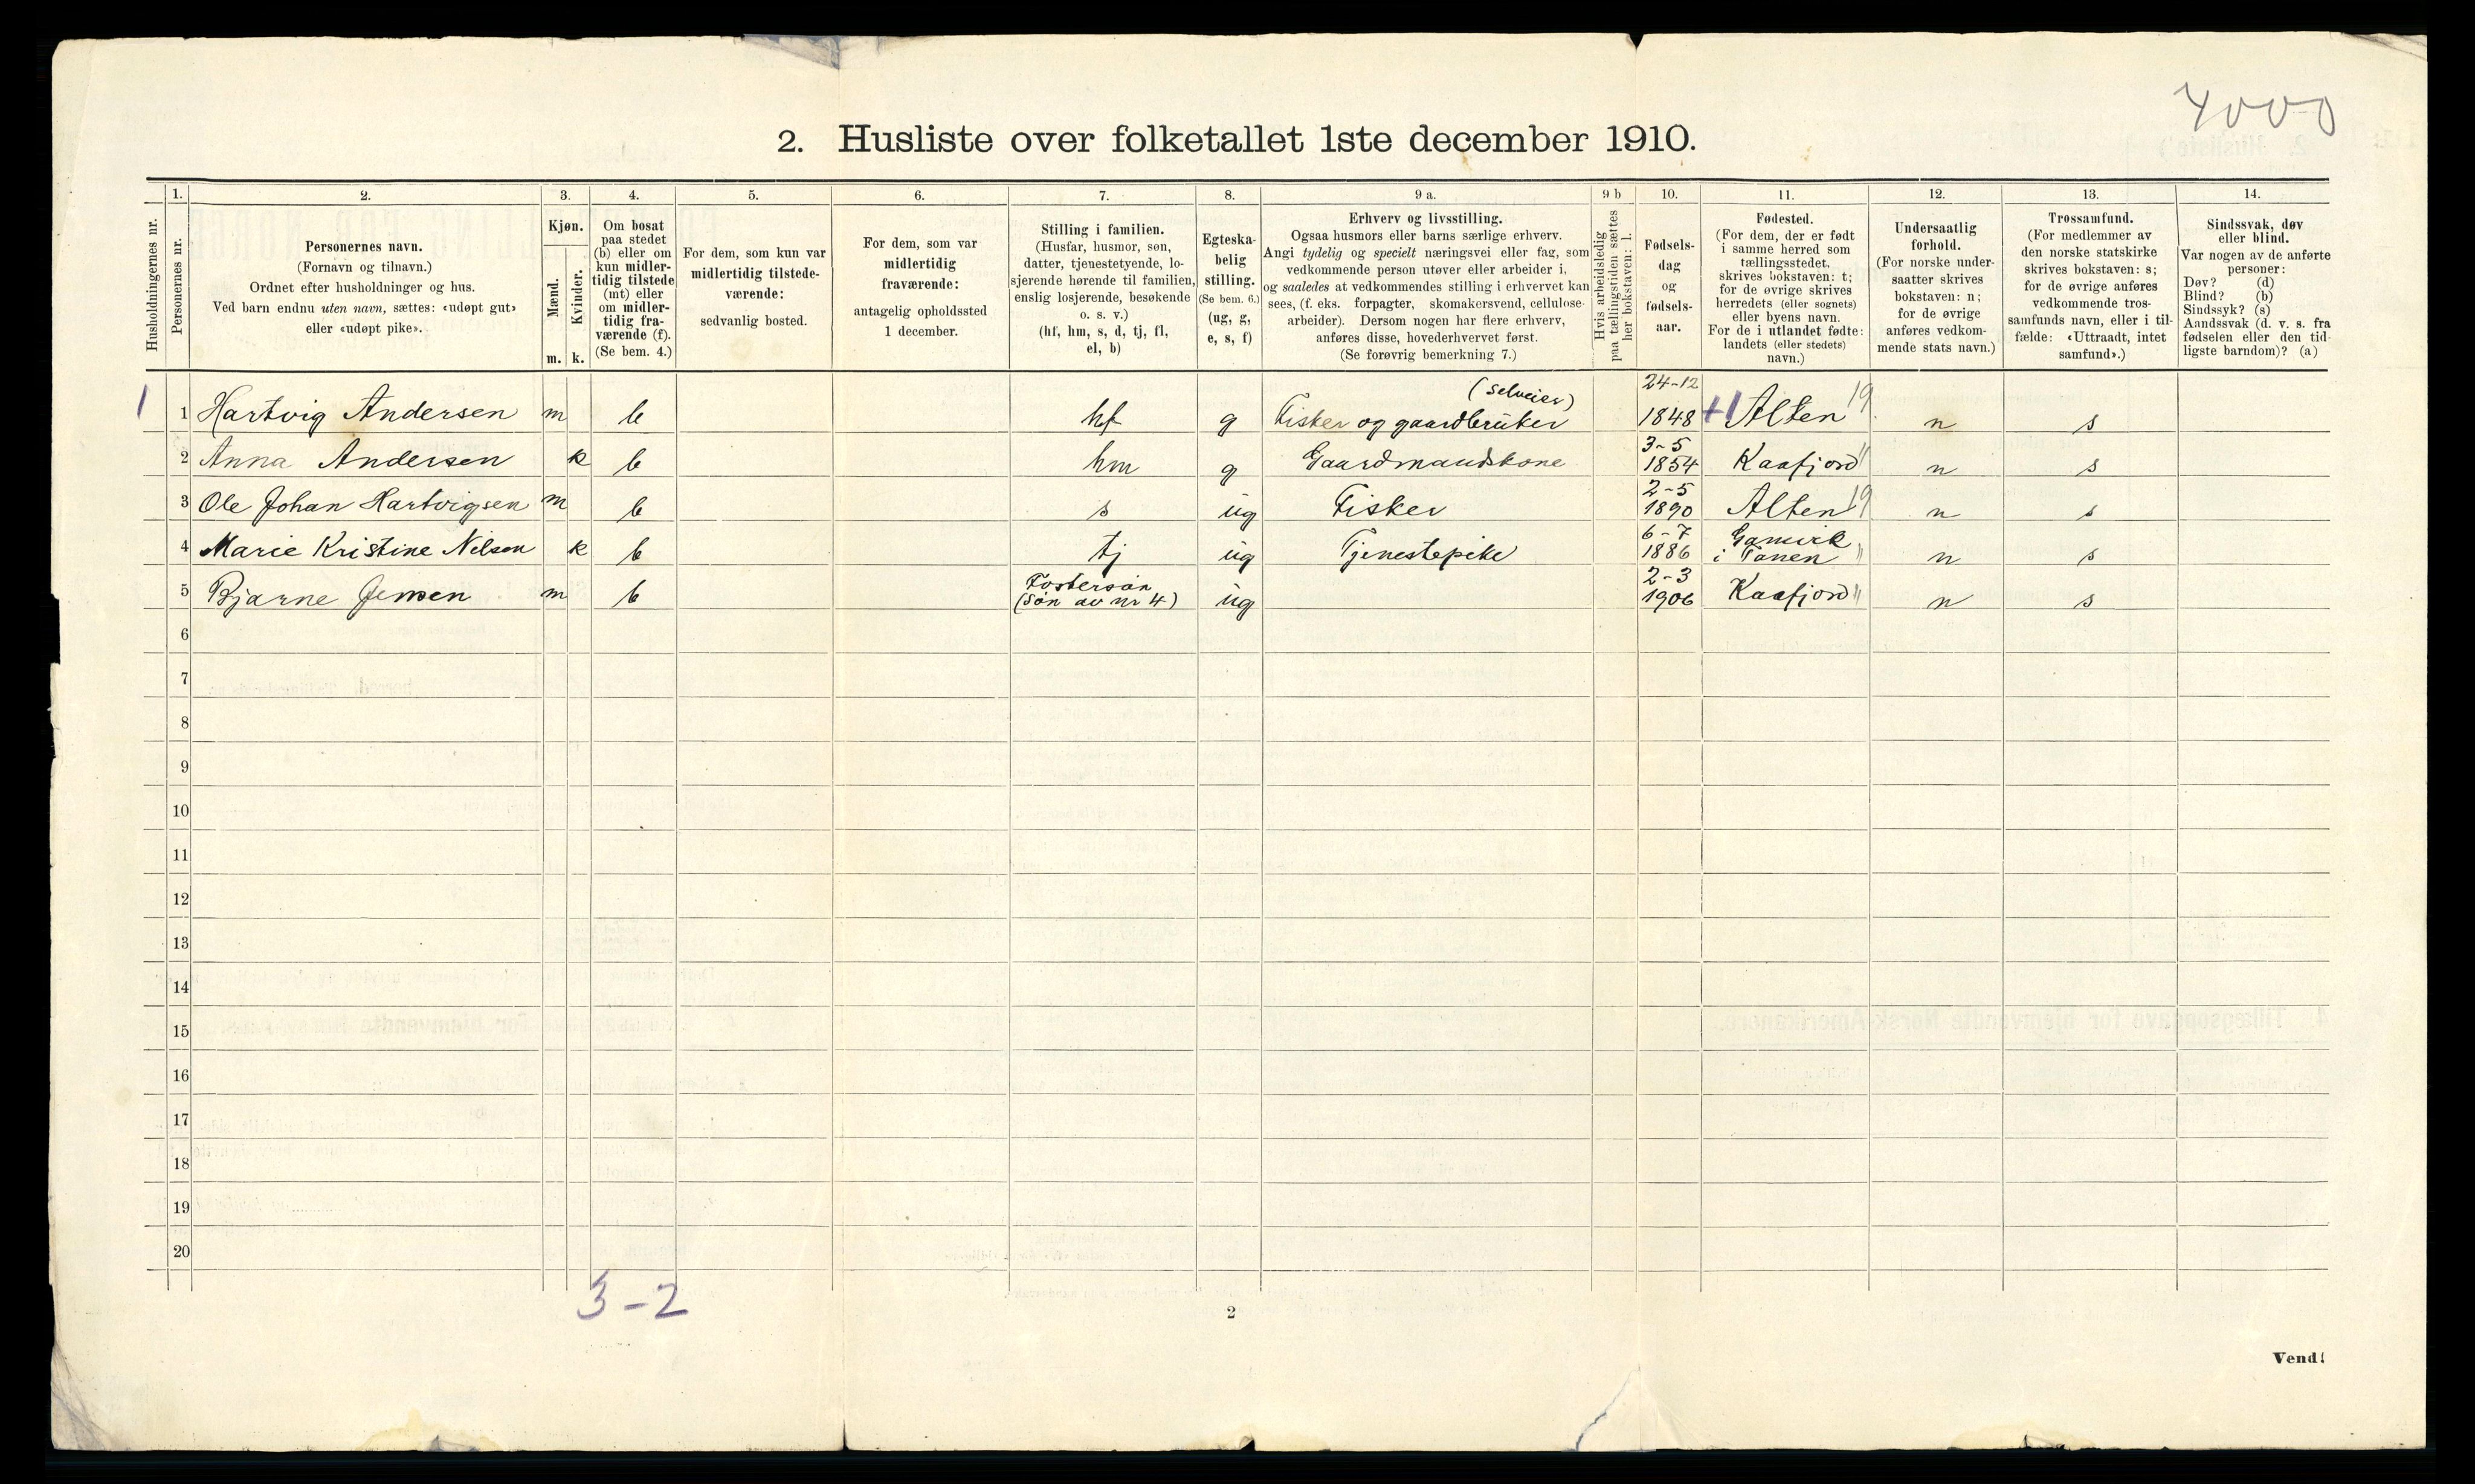 4000
2. Husliste over folketallet 1ste december 1910.
Husholdningernes nr.
1.
Personernes nr.
2.
Personernes navn.
(Fornavn og tilnavn.)
Ordnet efter husholdninger og hus.
Ved barn endnu uten navn, sættes: «udøpt gut»
eller «udøpt pike».
3.
Kjøn.
Mænd.
Kvinder.
m. k.
4.
Om bosat
paa stedet
(b) eller om
kun midler-
tidig tilstede
(mt) eller
om midler-
tidig fra-
værende (f).
(Se bem. 4.)
5.
For dem, som kun var
midlertidig tilstede-
værende:
sedvanlig bosted.
6.
For dem, som var
midlertidig
fraværende:
antagelig opholdssted
1 december.
7.
Stilling i familien.
(Husfar, husmor, søn,
datter, tjenestetyende, lo-
sjerende hørende til familien,
enslig losjerende, besøkende
o. s. v.)
(hf, hm, s, d, tj, fl,
el, b)
8.
Egteska-
belig
stilling.
(Se bem. 6.)
(ug, g,
e, s, f)
9 a.
Erhverv og livsstilling.
Ogsaa husmors eller barns særlige erhverv.
Angi tydelig og specielt næringsvei eller fag, som
vedkommende person utøver eller arbeider i,
og saaledes at vedkommendes stilling i erhvervet kan
sees, (f. eks. forpagter, skomakersvend, cellulose-
arbeider). Dersom nogen har flere erhverv,
anføres disse, hovederhvervet først.
(Se forøvrig bemerkning 7.)
9 b
Hvis arbeidsledig
paa tællingstiden sættes
her bokstaven: l.
10.
Fødsels-
dag
og
fødsels-
aar.
11.
Fødested.
(For dem, der er født
i samme herred som
tællingsstedet,
skrives bokstaven: t;
for de øvrige skrives
herredets (eller sognets)
eller byens navn.
For de i utlandet fødte:
landets (eller stedets)
navn.)
12.
Undersaatlig
forhold.
(For norske under-
saatter skrives
bokstaven: n;
for de øvrige
anføres vedkom-
mende stats navn.)
13.
Trossamfund.
(For medlemmer av
den norske statskirke
skrives bokstaven: s;
for de øvrige anføres
vedkommende tros-
samfunds navn, eller i til-
fælde: «Uttraadt, intet
samfund».)
14.
Sindssvak, døv
eller blind.
Var nogen av de anførte
personer:
Døv? (d)
Blind? (b)
Sindssyk? (s)
Aandssvak (d. v. s. fra
fødselen eller den tid-
ligste barndom)? (a)
1 1 Hartvig Andersen m b hf g Fisker og gaardbruker (selveier) 24-12 1848 +1 Alten 19 n s
2 Anna Andersen k b hm g Gaardmandskone 3-5 1854 Kaafjord " n s
3 Ole Johan Hartvigsen m b s ug Fisker 2-5 1890 Alten 19 n s
4 Marie Kristine Nilsen k b tj ug Tjenestepike 6-7 1886 Gamvik i Tanen " n s
5 Bjarne Jensen m b Fostersøn (søn av nr 4) ug 2-3 1906 Kaafjord " n s
6
7
8
9
10
11
12
13
14
15
16
17
18
19
20
3-2
2
Vend!